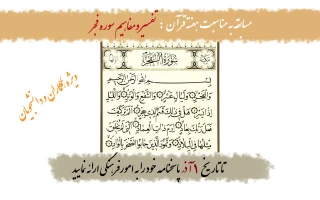 مسابقه به مناسبت هفته قرآن : تفسیر و مفاهیم سوره فجر
ویژه همکاران و دانشجویان
سورة الفجر
بسم الله الرحمن الرحيم
وَالْفَجْرِ وَلَيَالٍ عَشْرٍ وَالشَّفْعِ وَالْوَتْرِ وَاللَّيْلِ
إِذَا يَسْرِ هَلْ فِي ذَٰلِكَ قَسَمٌ لِذِي حِجْرٍ أَلَمْ تَرَ كَيْفَ
فَعَلَ رَبُّكَ بِعَادٍ إِرَمَ ذَاتِ الْعِمَادِ الَّتِي لَمْ يُخْلَقْ
مِثْلُهَا فِي الْبِلَادِ وَثَمُودَ الَّذِينَ جَابُوا الصَّخْرَ بِالْوَادِ
تا تاریخ ۹ آذر پاسخنامه خود را به امور فرهنگی ارائه نمایید